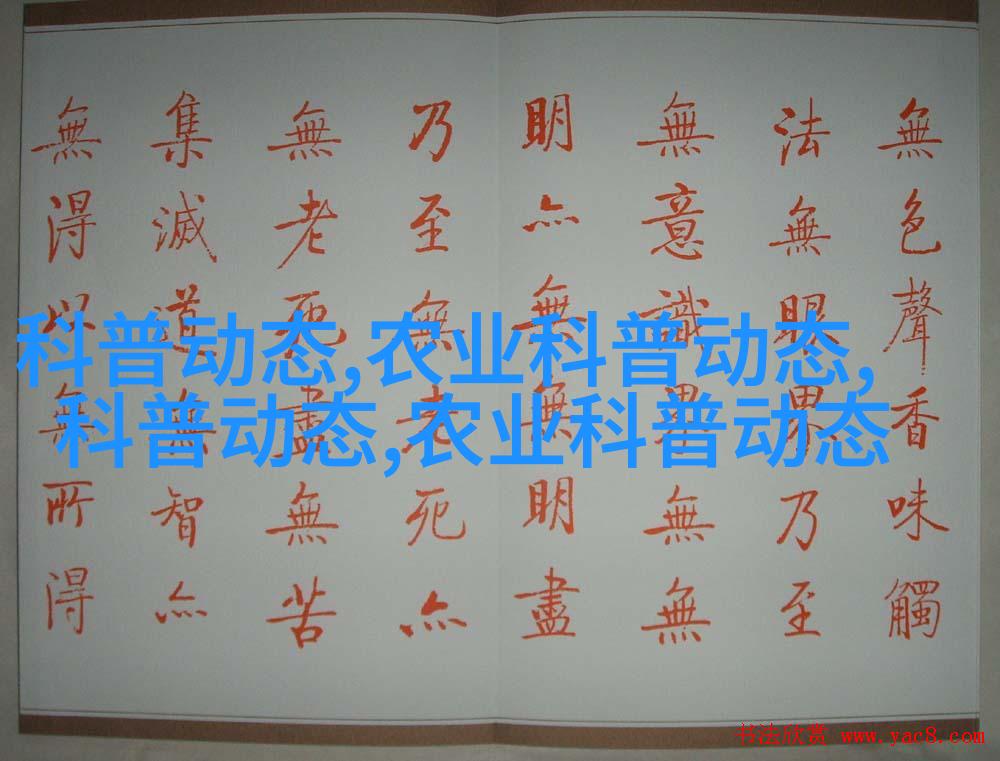 無色聲香味觸
法無眼界乃至
無意識界無無
明亦無無明盡
乃至無老死亦
無老死盡無苦
集滅道無智亦
無得以無所得
科普动态,农业科普动态,
科普动态,农业科普动态
书法欣赏 www.yac8.com